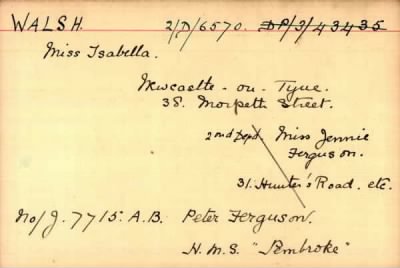 WALSH. 2/D/6570. DP/3/43435
Miss Isabella.
Newcastle - on - Tyne.
38. Morpeth Street.
2nd Dept. Miss Jennie
Ferguson.
31. Hunter's Road. etc.
No/J. 7715. A.B. Peter Ferguson.
H.M.S. "Pembroke"